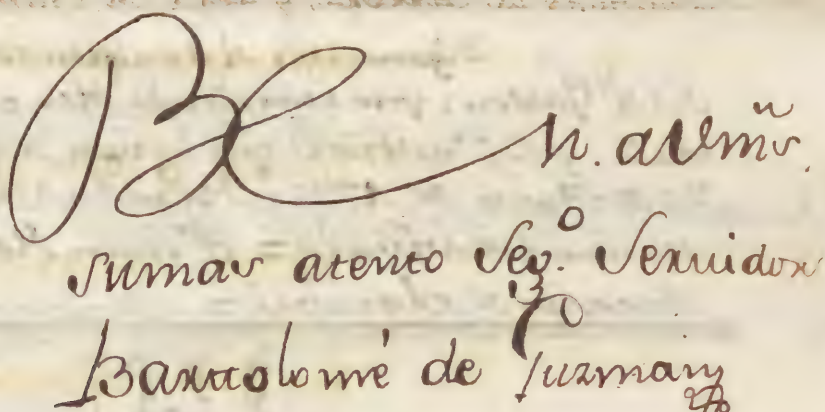 BL M. a Vms.
su mas atento Seg.º Servidor
Barttolomé de Guzman